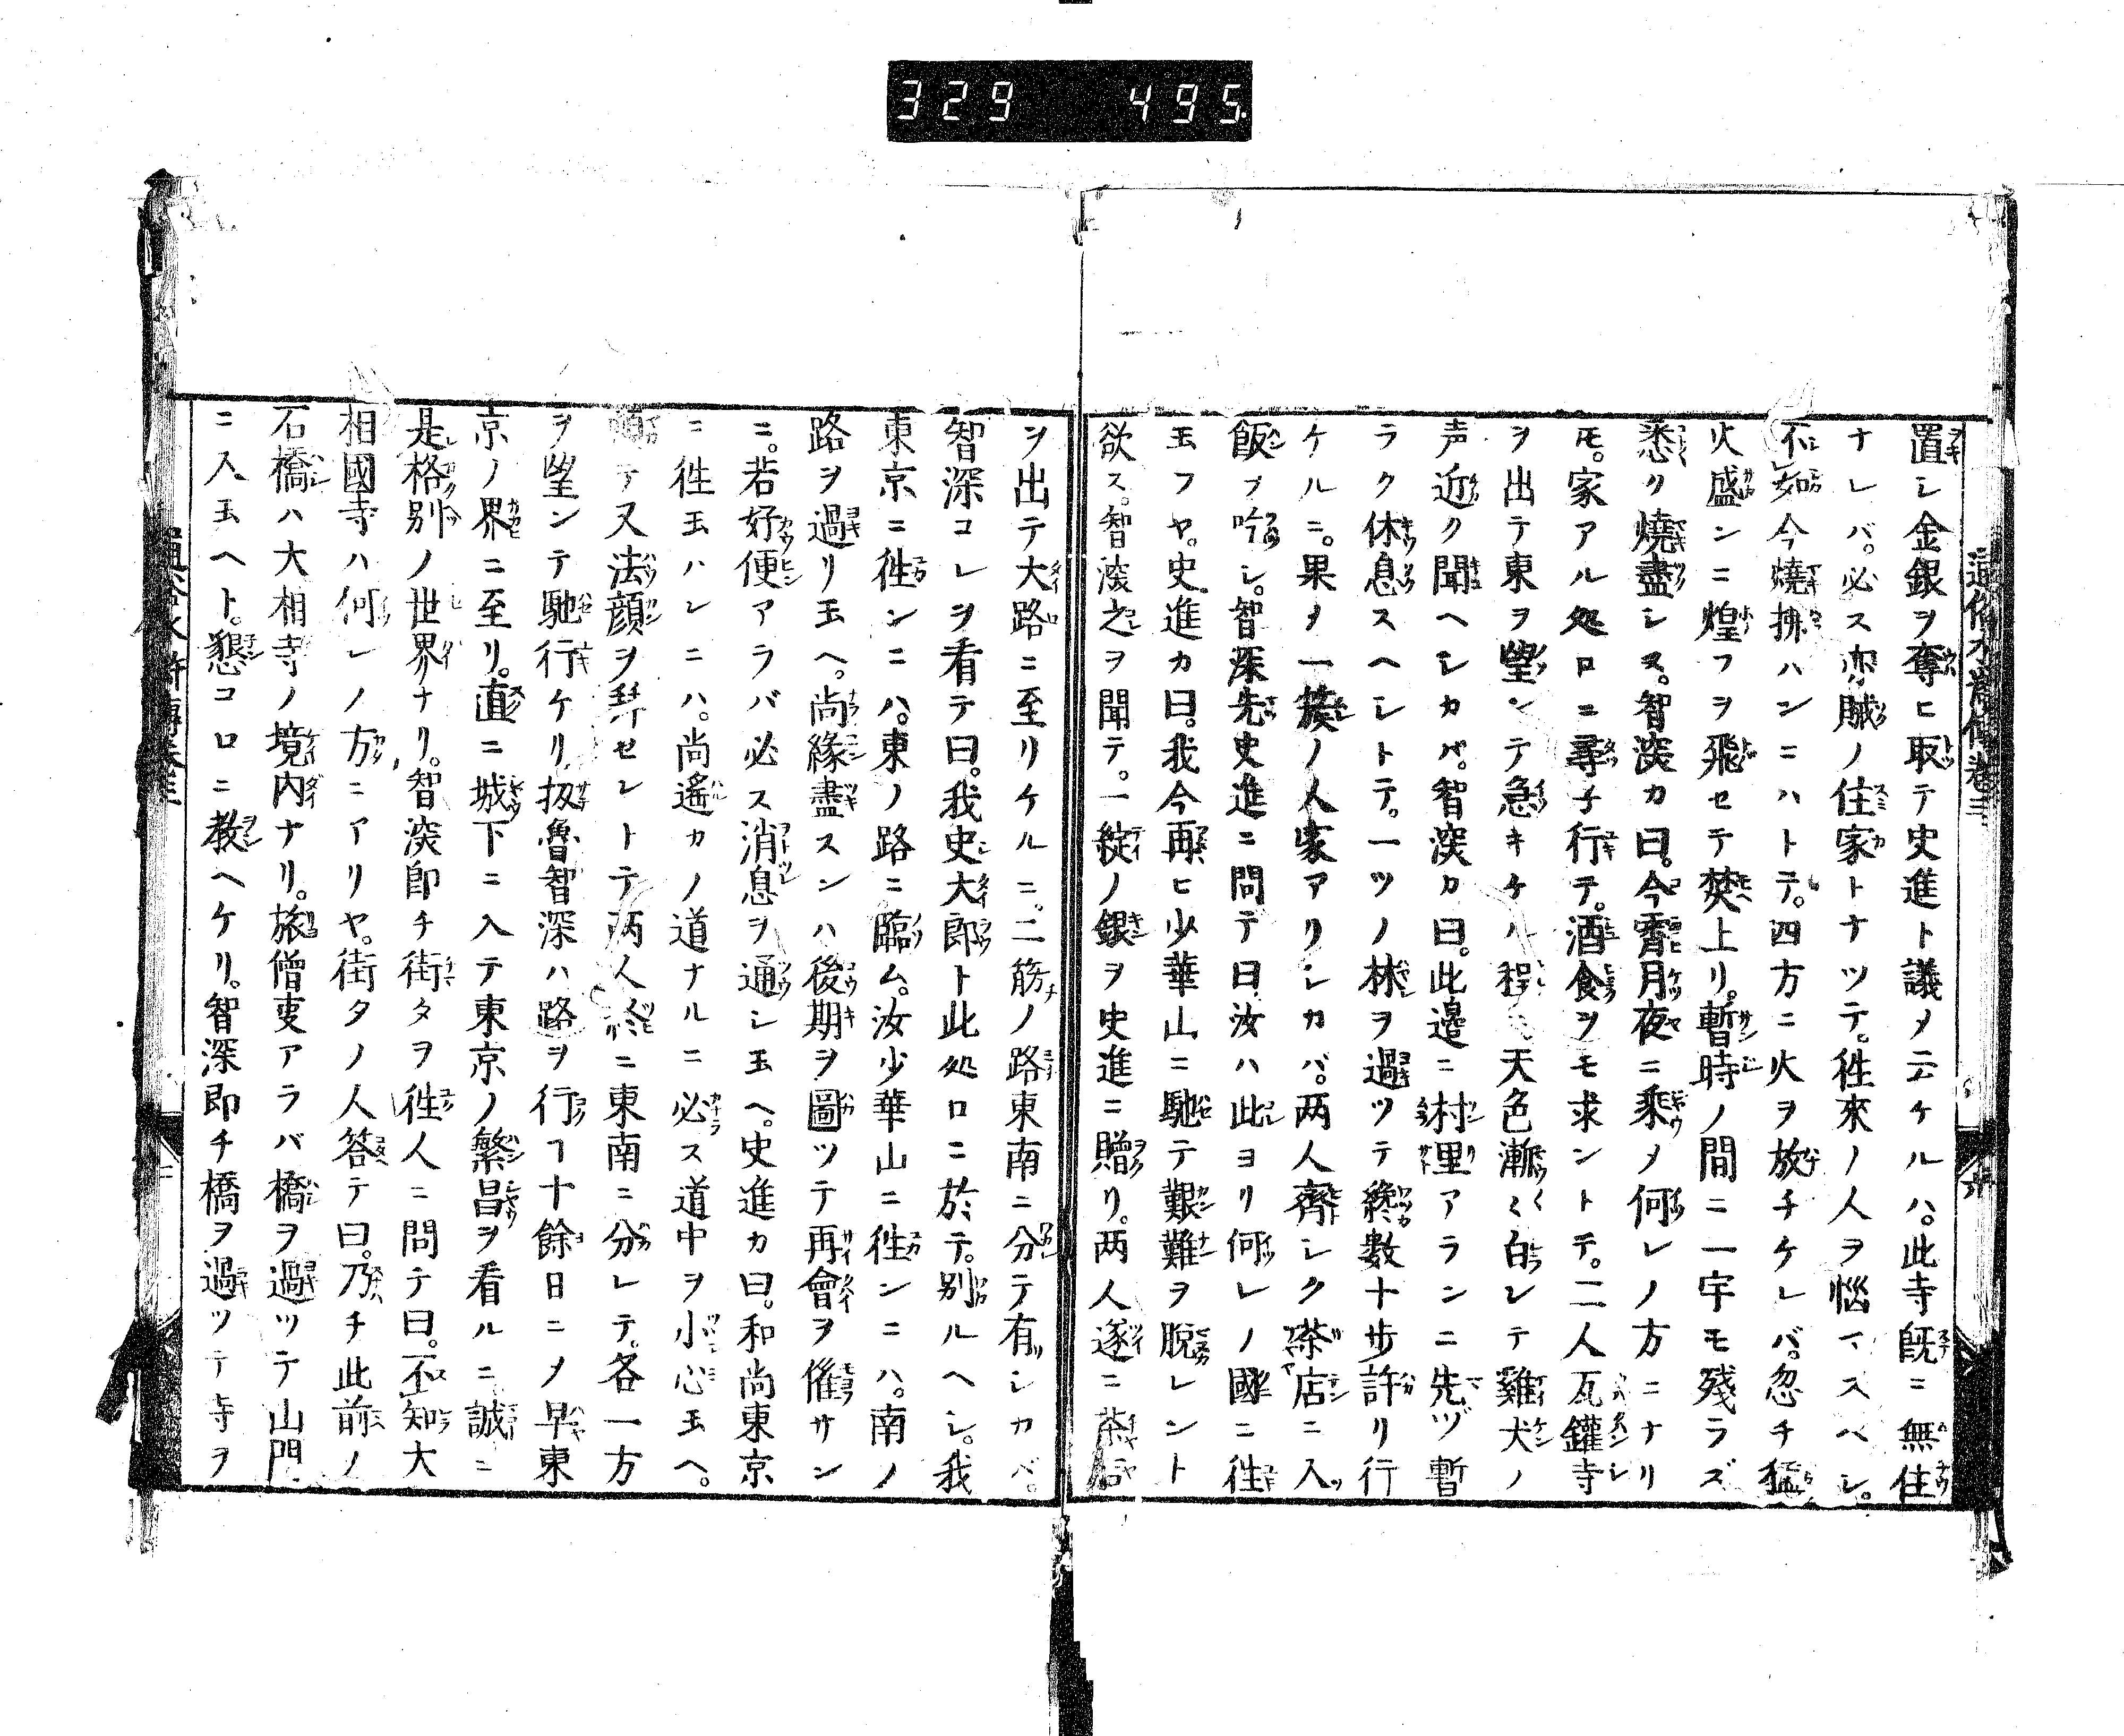 329 495
置シ金銀ヲ奪ヒ取テ史進ト議メ云ケルハ。此寺既ニ無住
ナレバ。必ス亦賊ノ住家トナツテ。徃來ノ人ヲ惱マスベシ。
不如今燒拂ハンニハトテ。四方ニ火ヲ放チケレバ。忽チ猛
火盛ンニ煌フヲ飛セテ焚上リ。暫時ノ間ニ一宇モ殘ラズ
悉ク燒盡シヌ。智深カ曰。今霄月夜ニ乘メ何レノ方ニナリ
モ。家アル処ロニ尋子行テ。酒食ヲモ求ントテ。二人瓦鑵寺
ヲ出テ東ヲ望ンテ急キケル程ニ天色漸〱白レテ雞犬ノ
声近ク聞ヘシカバ。智深カ曰。此邉ニ村里アランニ先ヅ暫
ラク休息スヘシトテ。一ツノ林ヲ過ツテ纔數十步許リ行
ケルニ。果メ一簇ノ人家アリシカバ。兩人齊シク茶店ニ入
飯ヲ吟シ。智深先史進ニ問テ曰汝ハ此ヨリ何レノ國ニ徃
玉フヤ。史進カ曰。我今再ヒ少華山ニ馳テ艱難ヲ脫レント
欲ス。智深之ヲ聞テ。一綻ノ銀ヲ史進ニ贈リ。兩人逐ニ茶店
ヲ出テ大路ニ至リケルニ。二筋ノ路東南ニ分テ有シカバ。
智深コレヲ看テ曰。我史大郎ト此処ロニ於テ。別ルヘシ。我
東京ニ徃ンニハ。東ノ路ニ臨ム。汝少華山ニ徃ンニハ。南ノ
路ヲ過リ玉ヘ。尚緣盡スンハ後期ヲ圖ツテ再會ヲ催サン
ニ。若好便アラバ必ス消息ヲ通シ玉ヘ。史進カ曰。和尚東京
ニ徃玉ハレニハ。尚遙カノ道ナルニ必ス道中ヲ小心玉ヘ。
テ又法顔ヲ拜セレトテ兩人終ニ東南ニ分レテ。各一方
ヲ望ンテ馳行ケリ扨魯智深ハ路ヲ行ヿ十餘日ニメ早東
京ノ界ニ至リ。直ニ城下ニ入テ東京ノ繁昌ヲ看ルニ誠ニ
是格別ノ世界ナリ。智深即チ街タヲ徃人ニ問テ曰。不知大
相國寺ハ何レノ方ニアリヤ。街タノ人答テ曰。乃チ此前ノ
石橋ハ大相寺ノ境内ナリ。旅僧叓アラバ橋ヲ過ツテ山門
ニ入玉ヘト。懇コロニ教ヘケリ。智深即チ橋ヲ過ツテ寺ヲ